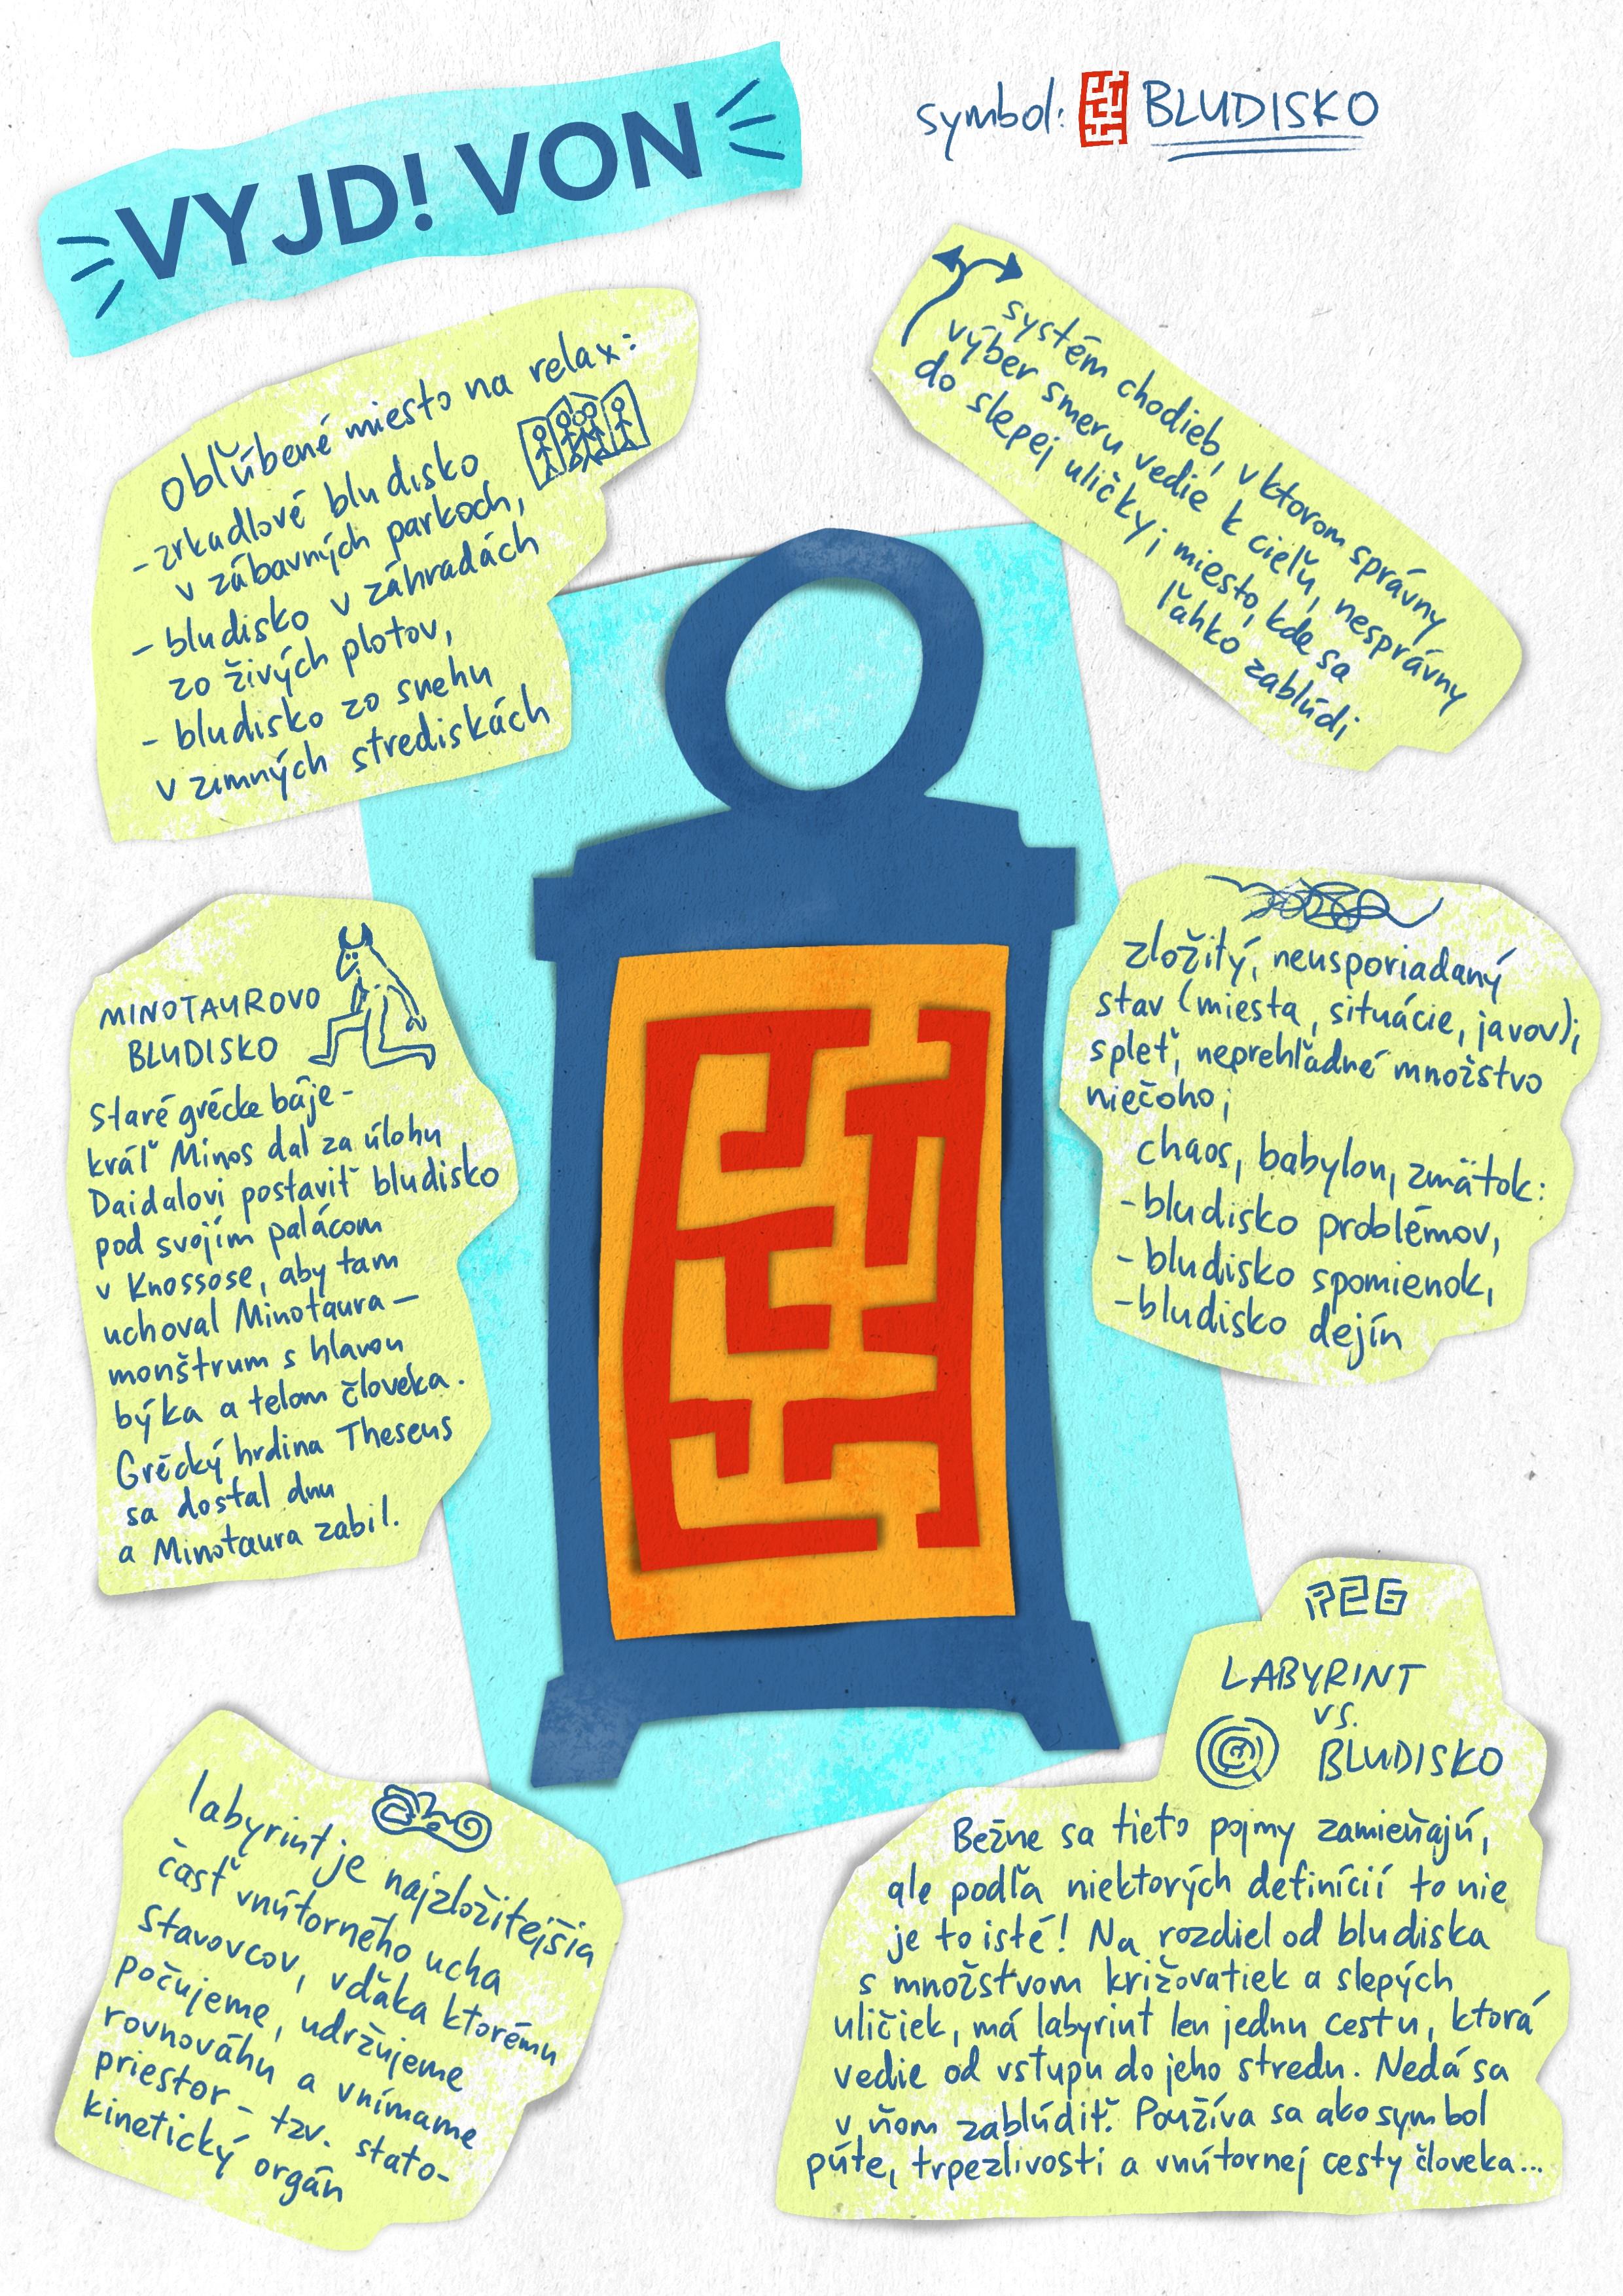 VYJD! VON
symbol: BLUDISKO
obľúbené miesto na relax:
- zrkadlové bludisko
v zábavných parkoch,
- bludisko v záhradách
zo živých plotov,
- bludisko zo snehu
v zimných strediskách
systém chodieb, v ktorom správny
výber smeru vedie k cieľu, nesprávny
do slepej uličky; miesto, kde sa
ľahko zablúdi
MINOTAUROVO
BLUDISKO
Staré grécke báje -
kráľ Minos dal za úlohu
Daidalovi postaviť bludisko
pod svojím palácom
v Knossose, aby tam
uchoval Minotaura –
monštrum s hlavou
býka a telom človeka.
Grécky hrdina Theseus
sa dostal dnu
a Minotaura zabil.
zložitý, neusporiadaný
stav (miesta, situácie, javov);
spleť, neprehľadné množstvo
niečoho;
chaos, babylon, zmätok:
- bludisko problémov,
- bludisko spomienok,
- bludisko dejín
labyrint je najzložitejšia
časť vnútorného ucha
stavovcov, vďaka ktorému
počujeme, udržujeme
rovnováhu a vnímame
priestor - tzv. stato-
kinetický orgán
LABYRINT
vs.
BLUDISKO
Bežne sa tieto pojmy zamieňajú,
ale podľa niektorých definícií to nie
je to isté! Na rozdiel od bludiska
s množstvom križovatiek a slepých
uličiek, má labyrint len jednu cestu, ktorá
vedie od vstupu do jeho stredu. Nedá sa
v ňom zablúdiť. Používa sa ako symbol
púte, trpezlivosti a vnútornej cesty človeka...